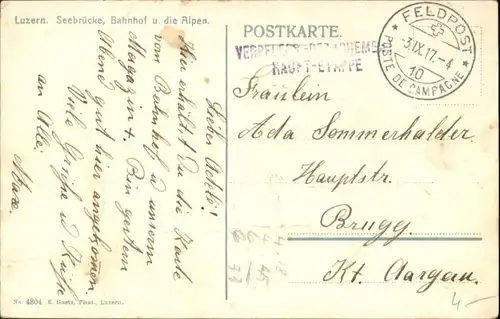 Luzern. Seebrücke, Bahnhof u. die Alpen.
Liebes Adeli!
Hier erhältst Du die Karte
vom Bahnhof u unserm
Magazin +. Bin gestern
Abend gut hier angekommen.
Viele Grüsse u Küsse
an Alle.
Max.
No 4804 E. Goetz, Phot., Luzern.
POSTKARTE.
HAUPT-ETAPPE
* FELDPOST *
-3.IX.17.-4
10
POSTE DE CAMPAGNE
Fräulein
Ada Sommerhalder
Hauptstr.
Brugg.
Kt. Aargau.
4-